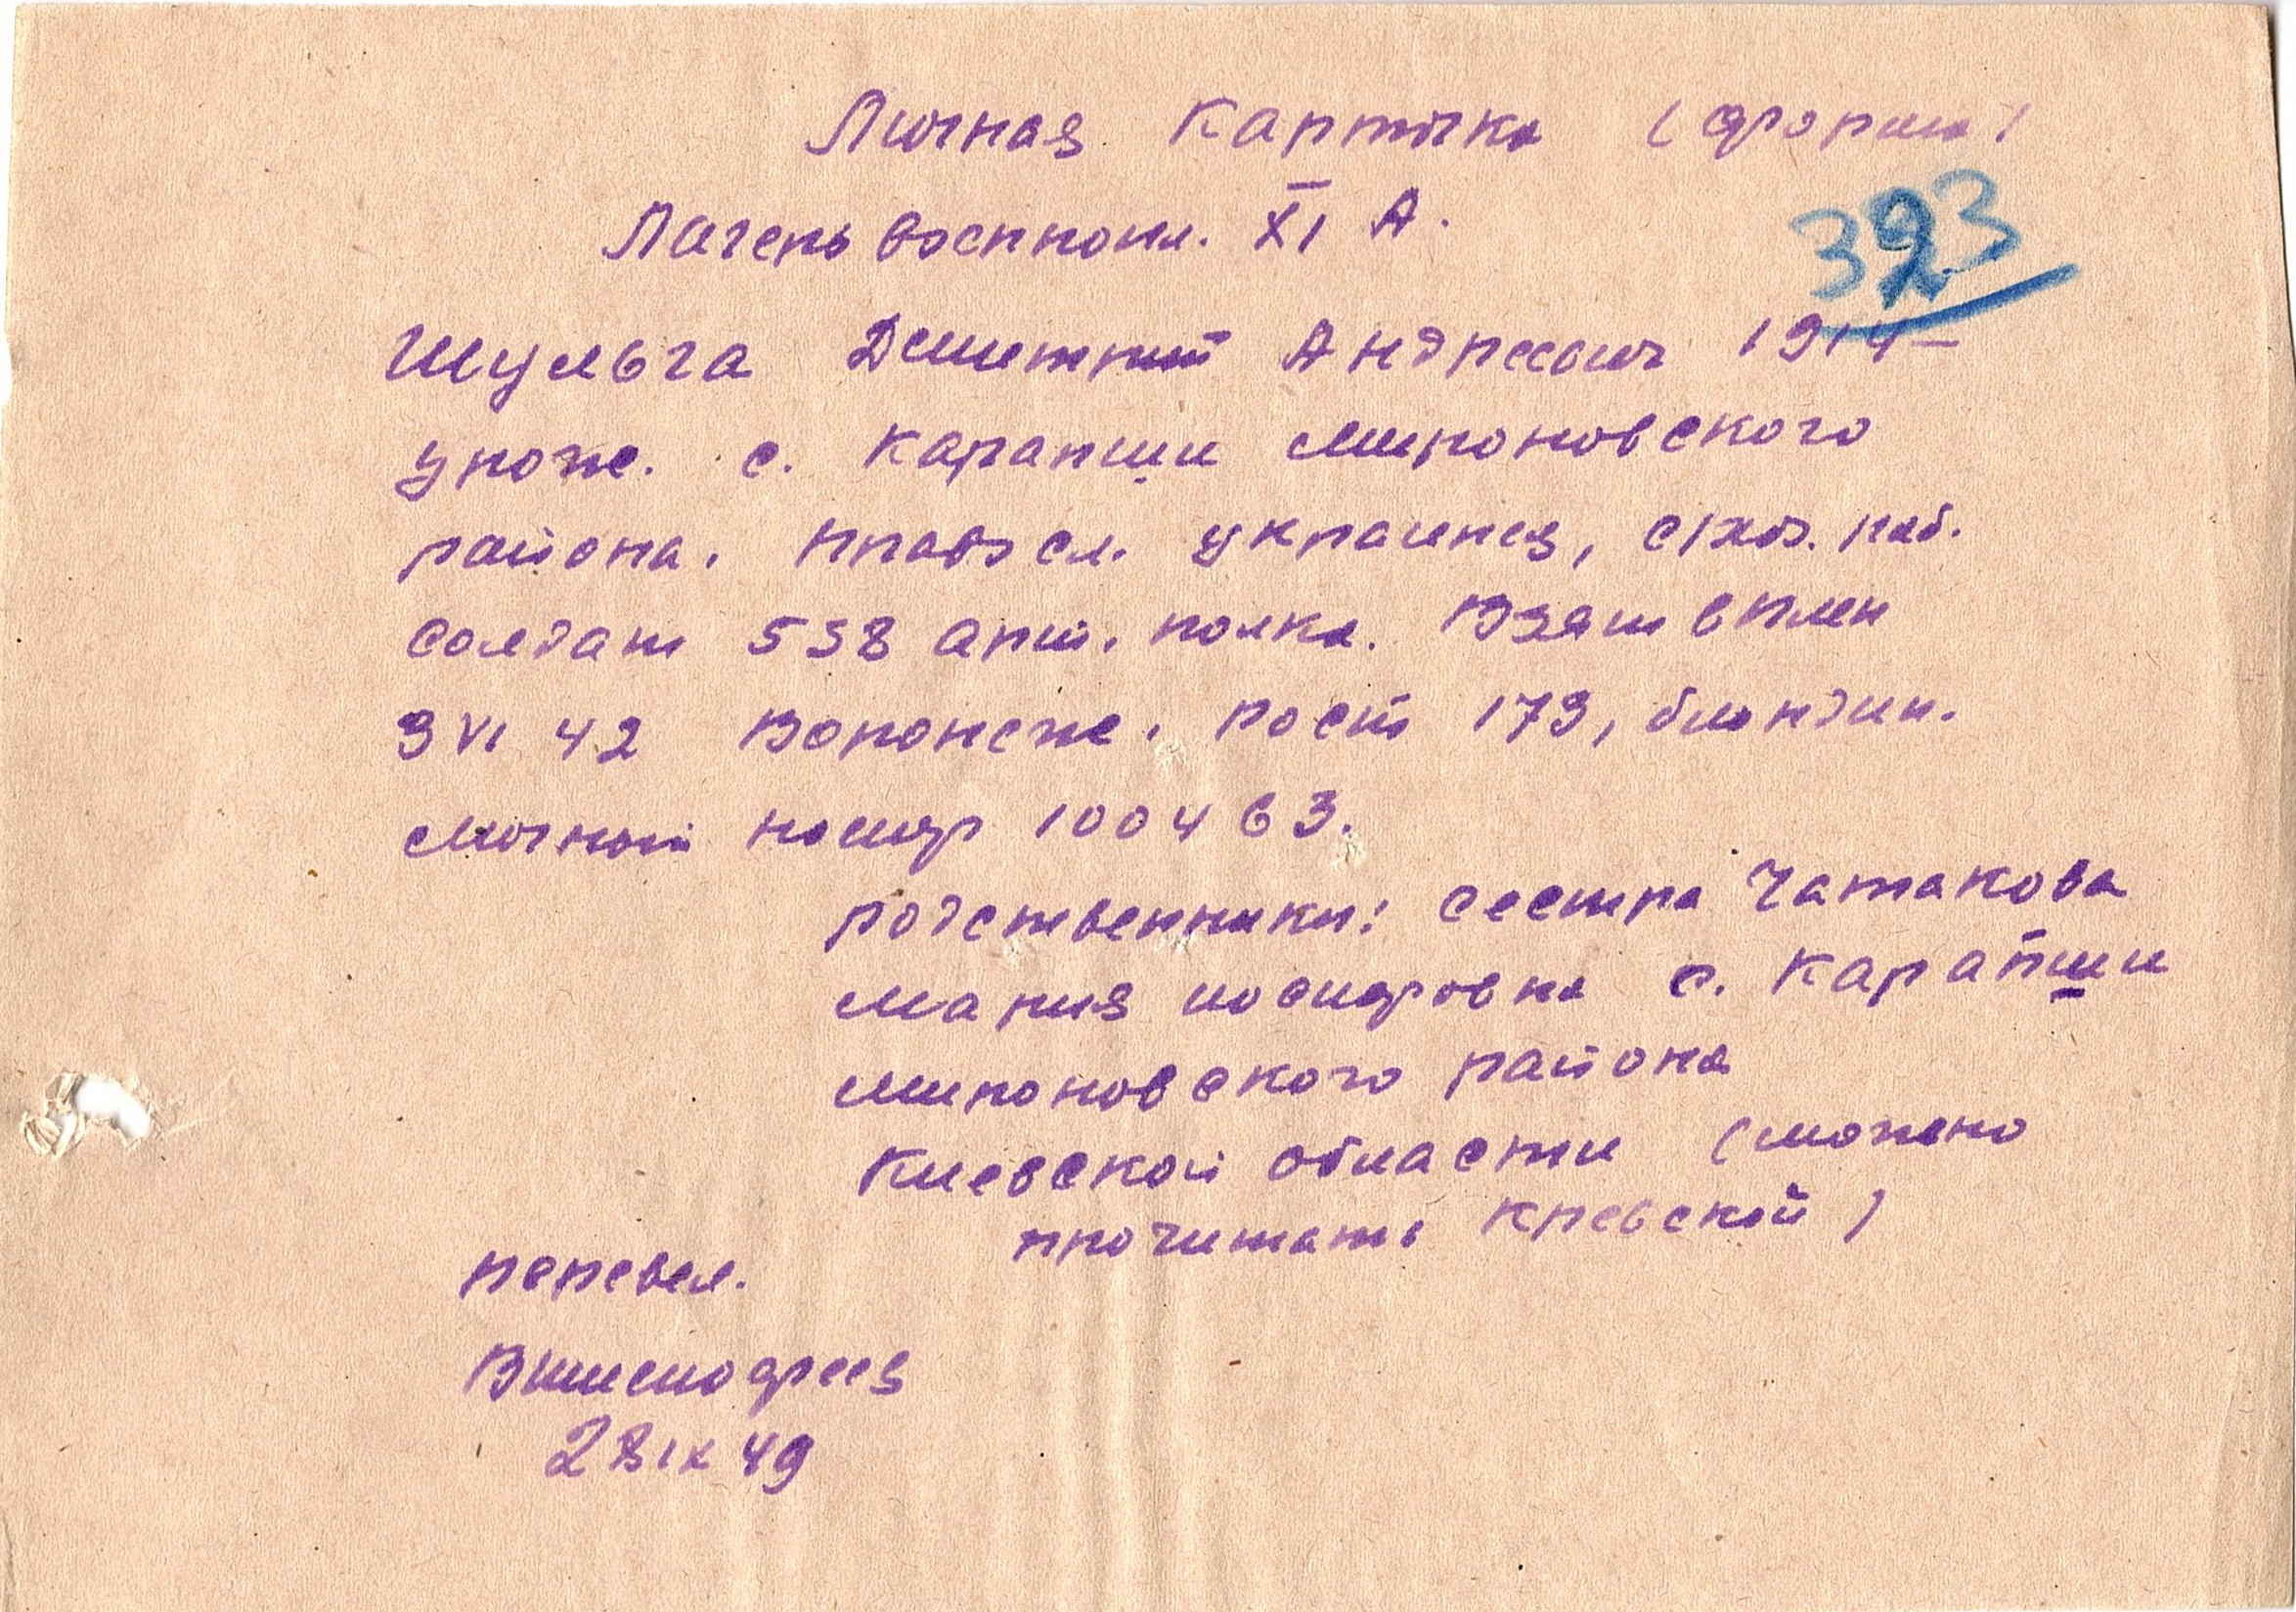 Личная карточка (форма)
Лагерь военнопл. XI А.
393
Шульга Дмитрий Андреевич 1914 –
урож. с. Карапиши Мироновского
района. Правосл. украинец, с/хоз. раб.
солдат 538 арт. полка. Взят в плен
9 VI 42 Воронеже. рост 179, блондин.
личной номер 100463.
родственники: сестра Чатакова
Мария с. Карапиши
Мироновского района
Киевской области (можно
прочитать Кревской)
перевел.
28 IX 49